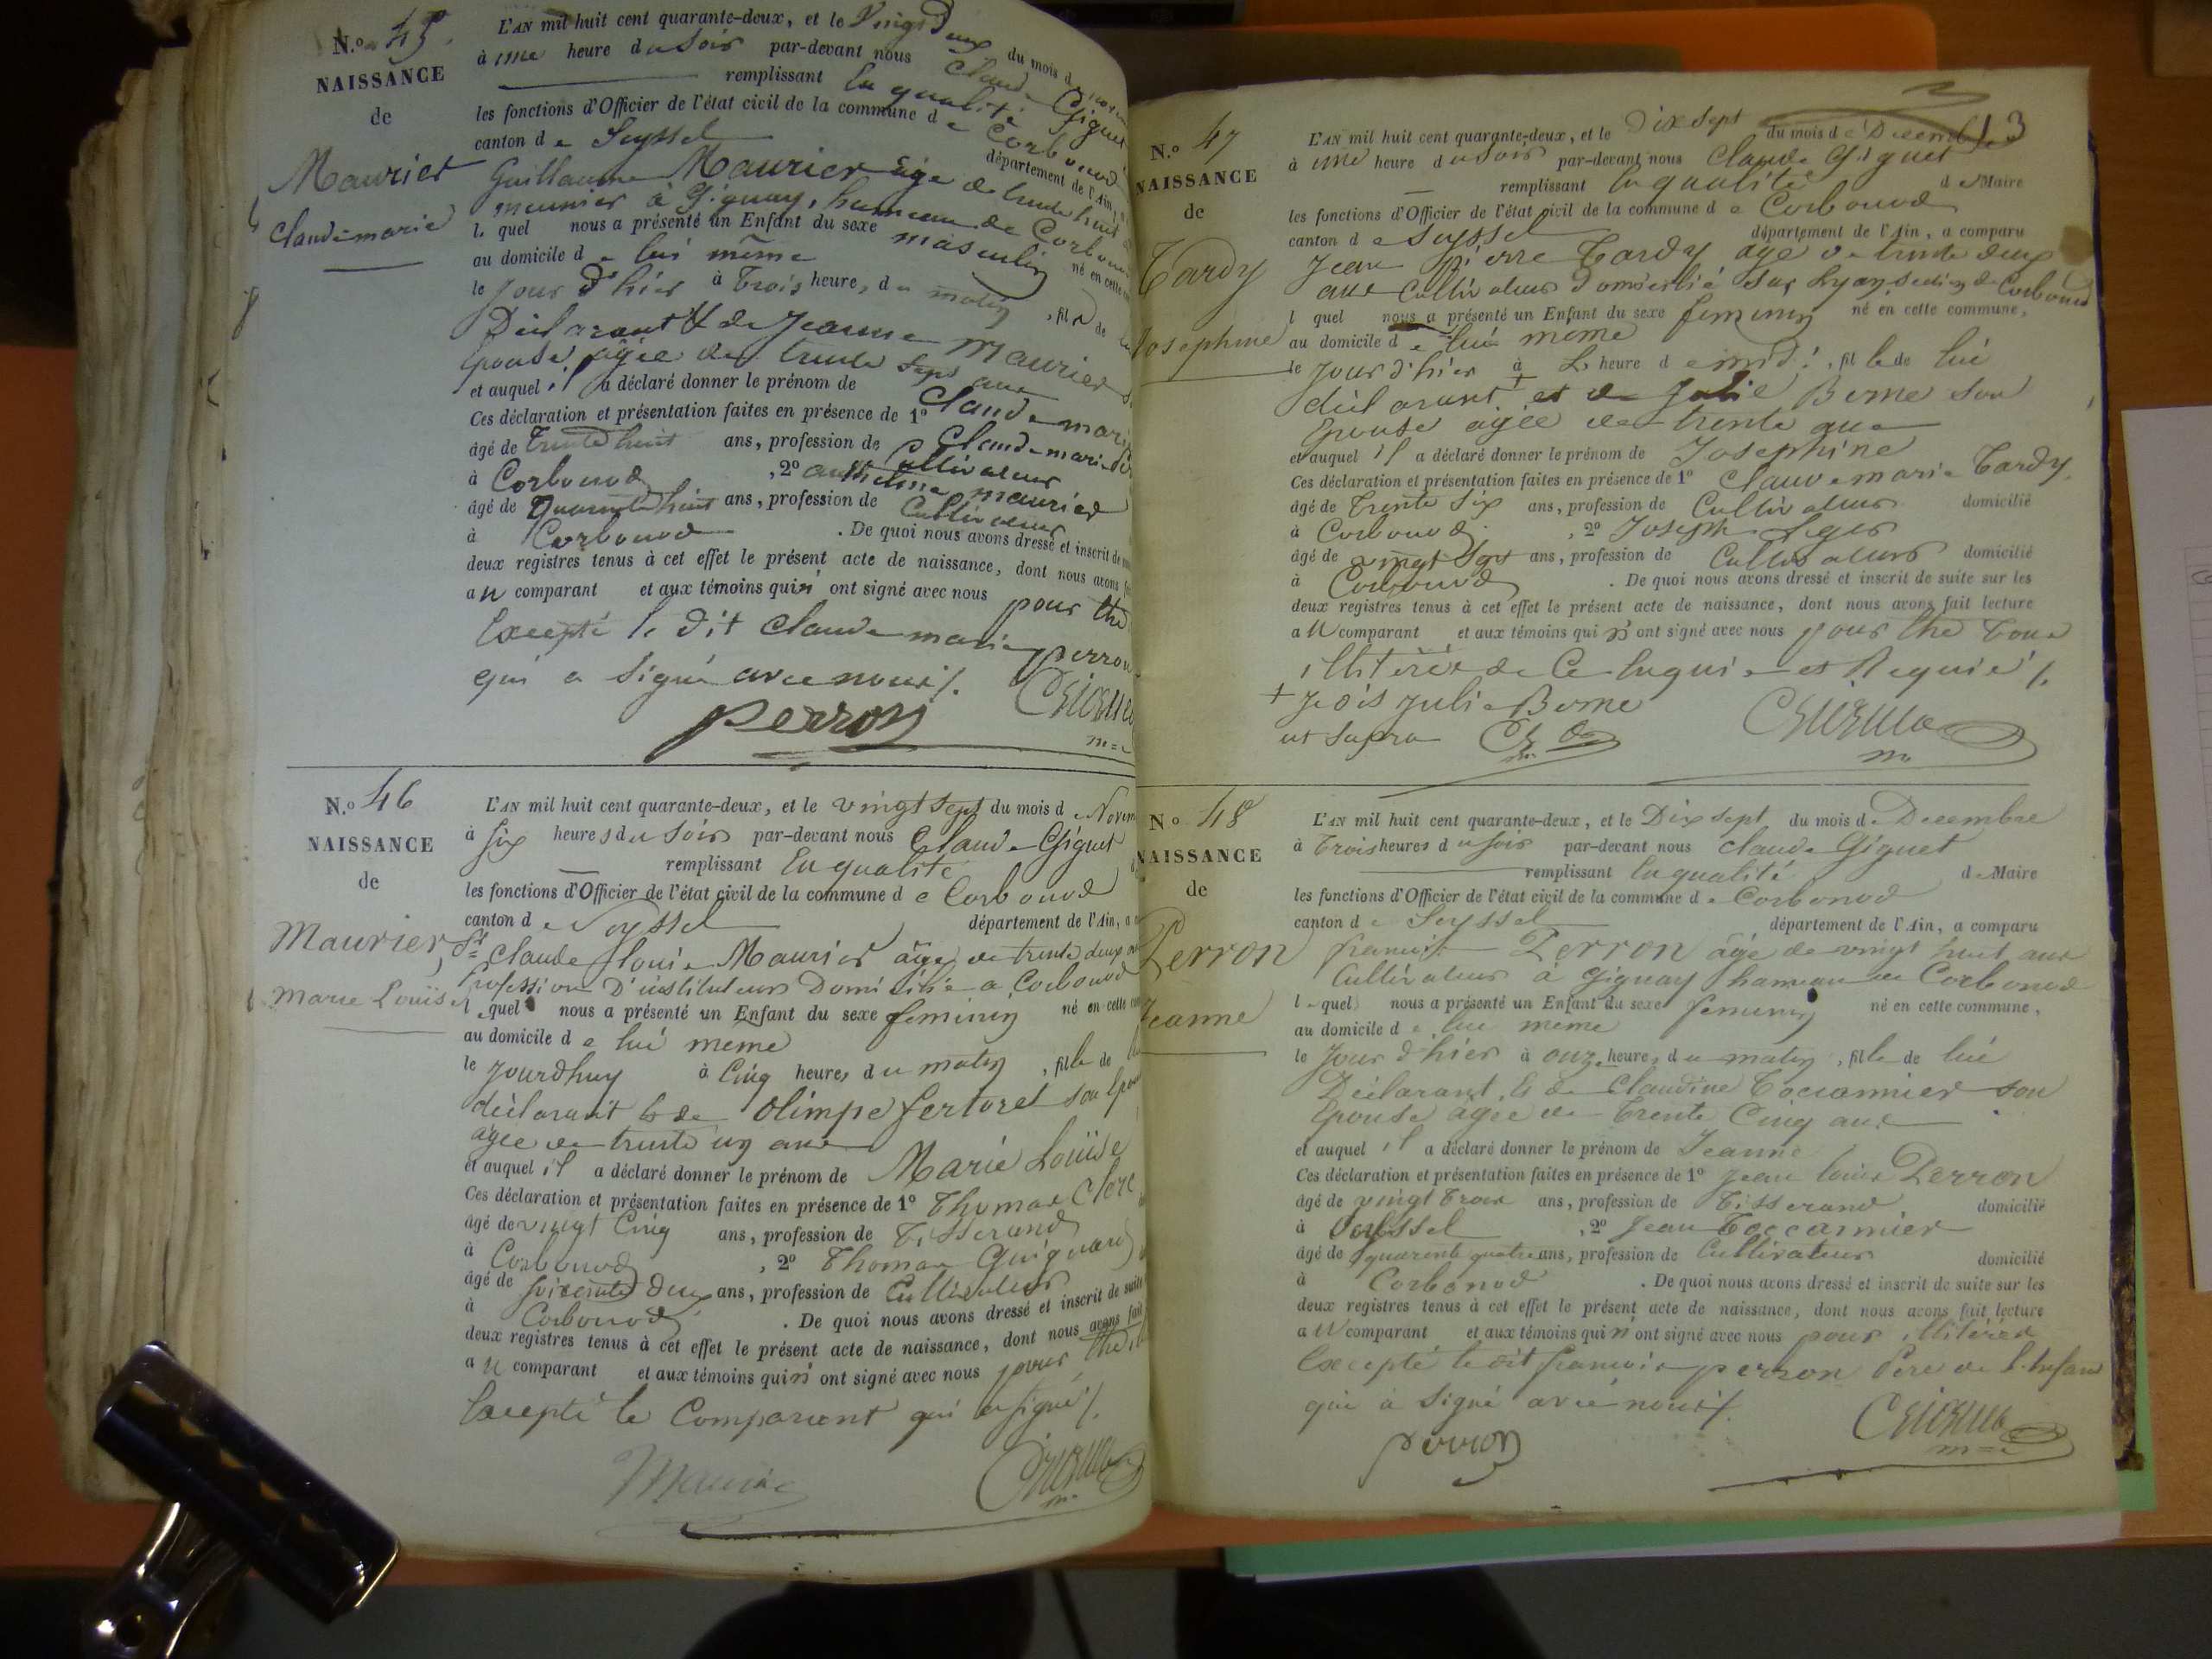 N.o 45.
NAISSANCE
de
Maurier
Claude marie
L'AN mil huit cent quarante-deux, et le Vingt Deux du mois d
à une heure du Soir par-devant nous Claude Giguet
remplissant En qualité
les fonctions d'Officier de l'état civil de la commune de Corbonod
canton de Seyssel département de l'Ain,
Guillaume Maurier âgé de trente huit
meunier à Gignay, hameau de Corbonod
le quel nous a présenté un Enfant du sexe masculin né en cette
au domicile de lui même
le jour d'hier à Trois heures, du matin, fils de
Déclarant & de Jeanne Maurier
Epouse, agée de trente Sept ans
et auquel il a déclaré donner le prénom de Claude marie
Ces déclaration et présentation faites en présence de 1o Claude marie
âgé de Trente huit ans, profession de Cultivateur
à Corbonod, 2o Anthelme maurier
âgé de Quarante huit ans, profession de Cultivateur
à Corbonod. De quoi nous avons dressé et inscrit de
deux registres tenus à cet effet le présent acte de naissance, dont nous avons
au comparant et aux témoins qui n' ont signé avec nous pour
Excepté le dit Claude marie perron
qui a signé avec nous/.
perron
N.o 46
NAISSANCE
de
Maurier,
Marie Louise
L'AN mil huit cent quarante-deux, et le vingt Sept du mois de Novem
à Six heures du Soir par-devant nous Claude Giguet
remplissant En qualité
les fonctions d'Officier de l'état civil de la commune de Corbonod
canton de Seyssel département de l'Ain, a
Sr Claude Louis Maurier âgé de trente deux
Profession D'instituteur Domicilié a Corbonod
le quel nous a présenté un Enfant du sexe feminin né en cette
au domicile de lui meme
le Jourdhuy à Cinq heures du matin, fille de
déclarant & de Olimpe fertoret son Epouse
agée de trente un ans
et auquel il a déclaré donner le prénom de Marie Louise
Ces déclaration et présentation faites en présence de 1o Thomas Clerc
âgé de vingt Cinq ans, profession de Tisserand
à Corbonod, 2o Thomas Guignard
âgé de soixante Deux ans, profession de Cultivateur
à Corbonod. De quoi nous avons dressé et inscrit de suite
deux registres tenus à cet effet le présent acte de naissance, dont nous avons fait
au comparant et aux témoins qui n' ont signé avec nous pour
Excepté le Comparant qui a signé/.
Maurier
13
N.o 47
NAISSANCE
de
Tardy
Josephine
L'AN mil huit cent quarante-deux, et le Dix Sept du mois de Decemb
à une heure du Soir par-devant nous Claude Giguet
remplissant En qualité de Maire
les fonctions d'Officier de l'état civil de la commune de Corbonod
canton de Seyssel département de l'Ain, a comparu
Jean Pierre Tardy agé de trente deux
ans Cultivateur Domicilié Sur Lyan Section de Corbonod
l quel nous a présenté un Enfant du sexe feminin né en cette commune,
au domicile de lui meme
le Jour d'hier à L heure de midi, fille de lui
déclarant et de Julie Borne son
Epouse agée de trente ans
et auquel il a déclaré donner le prénom de Josephine
Ces déclaration et présentation faites en présence de 1o Claude marie Tardy
âgé de Trente Six ans, profession de Cultivateur domicilié
à Corbonod, 2o Joseph Leger
âgé de vingt Sept ans, profession de Cultivateur domicilié
à Corbonod. De quoi nous avons dressé et inscrit de suite sur les
deux registres tenus à cet effet le présent acte de naissance, dont nous avons fait lecture
au comparant et aux témoins qui n' ont signé avec nous pour Etre Tous
illitérés de Ce Enquis et Requis/.
+ Je dis Julie Borne
ut Supra
N.o 48
NAISSANCE
de
Perron
Jeanne
L'AN mil huit cent quarante-deux, et le Dix Sept du mois de Decembre
à Trois heures du Soir par-devant nous Claude Giguet
remplissant En qualité de Maire
les fonctions d'Officier de l'état civil de la commune de Corbonod
canton de Seyssel département de l'Ain, a comparu
francois Perron âgé de vingt huit ans
Cultivateur à Gignay hameau de Corbonod
le quel nous a présenté un Enfant du sexe feminin né en cette commune,
au domicile de lui meme
le Jour d'hier à onze heures du matin, fille de lui
Déclarant, & de Claudine Toccannier son
Epouse agée de Trente Cinq ans
et auquel il a déclaré donner le prénom de Jeanne
Ces déclaration et présentation faites en présence de 1o Jean louis Perron
âgé de vingt Trois ans, profession de Tisserand domicilié
à Seyssel, 2o Jean Toccannier
âgé de quarante quatre ans, profession de Cultivateur domicilié
à Corbonod. De quoi nous avons dressé et inscrit de suite sur les
deux registres tenus à cet effet le présent acte de naissance, dont nous avons fait lecture
au comparant et aux témoins qui n' ont signé avec nous pour illitérés
Excepté le dit francois perron Père de l'Enfant
qui à signé avec nous/.
perron